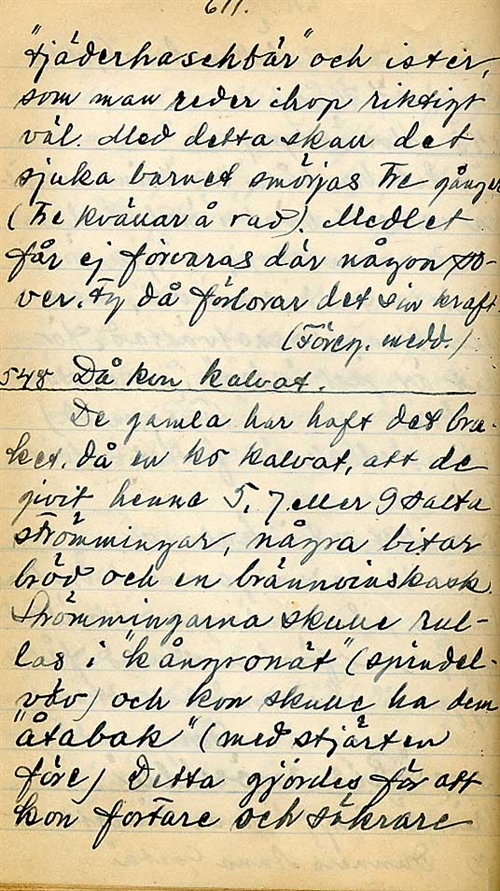 611.
"tjäderhaschbär" och ister,
som man reder ihop riktigt
väl. Med detta skall det
sjuka barnet smörjas tre gånger
(tre kvällar å rad). Medlet
får ej förvaras där någon so-
ver. Ty då förlorar det sin kraft.
(Föreg. medd.)
548 Då kon kalvat.
De gamla har haft det bru-
ket, då en ko kalvat, att de
givit henne 5, 7 eller 9 salta
strömmingar, några bitar
bröd och en brännvinskask.
Strömmingarna skulle rul-
las i "kångronät" (spindel-
väv) och kon skulle ha dem
"åtabak" (med stjärten
före) Detta gjordes för att
kon fortare och säkrare